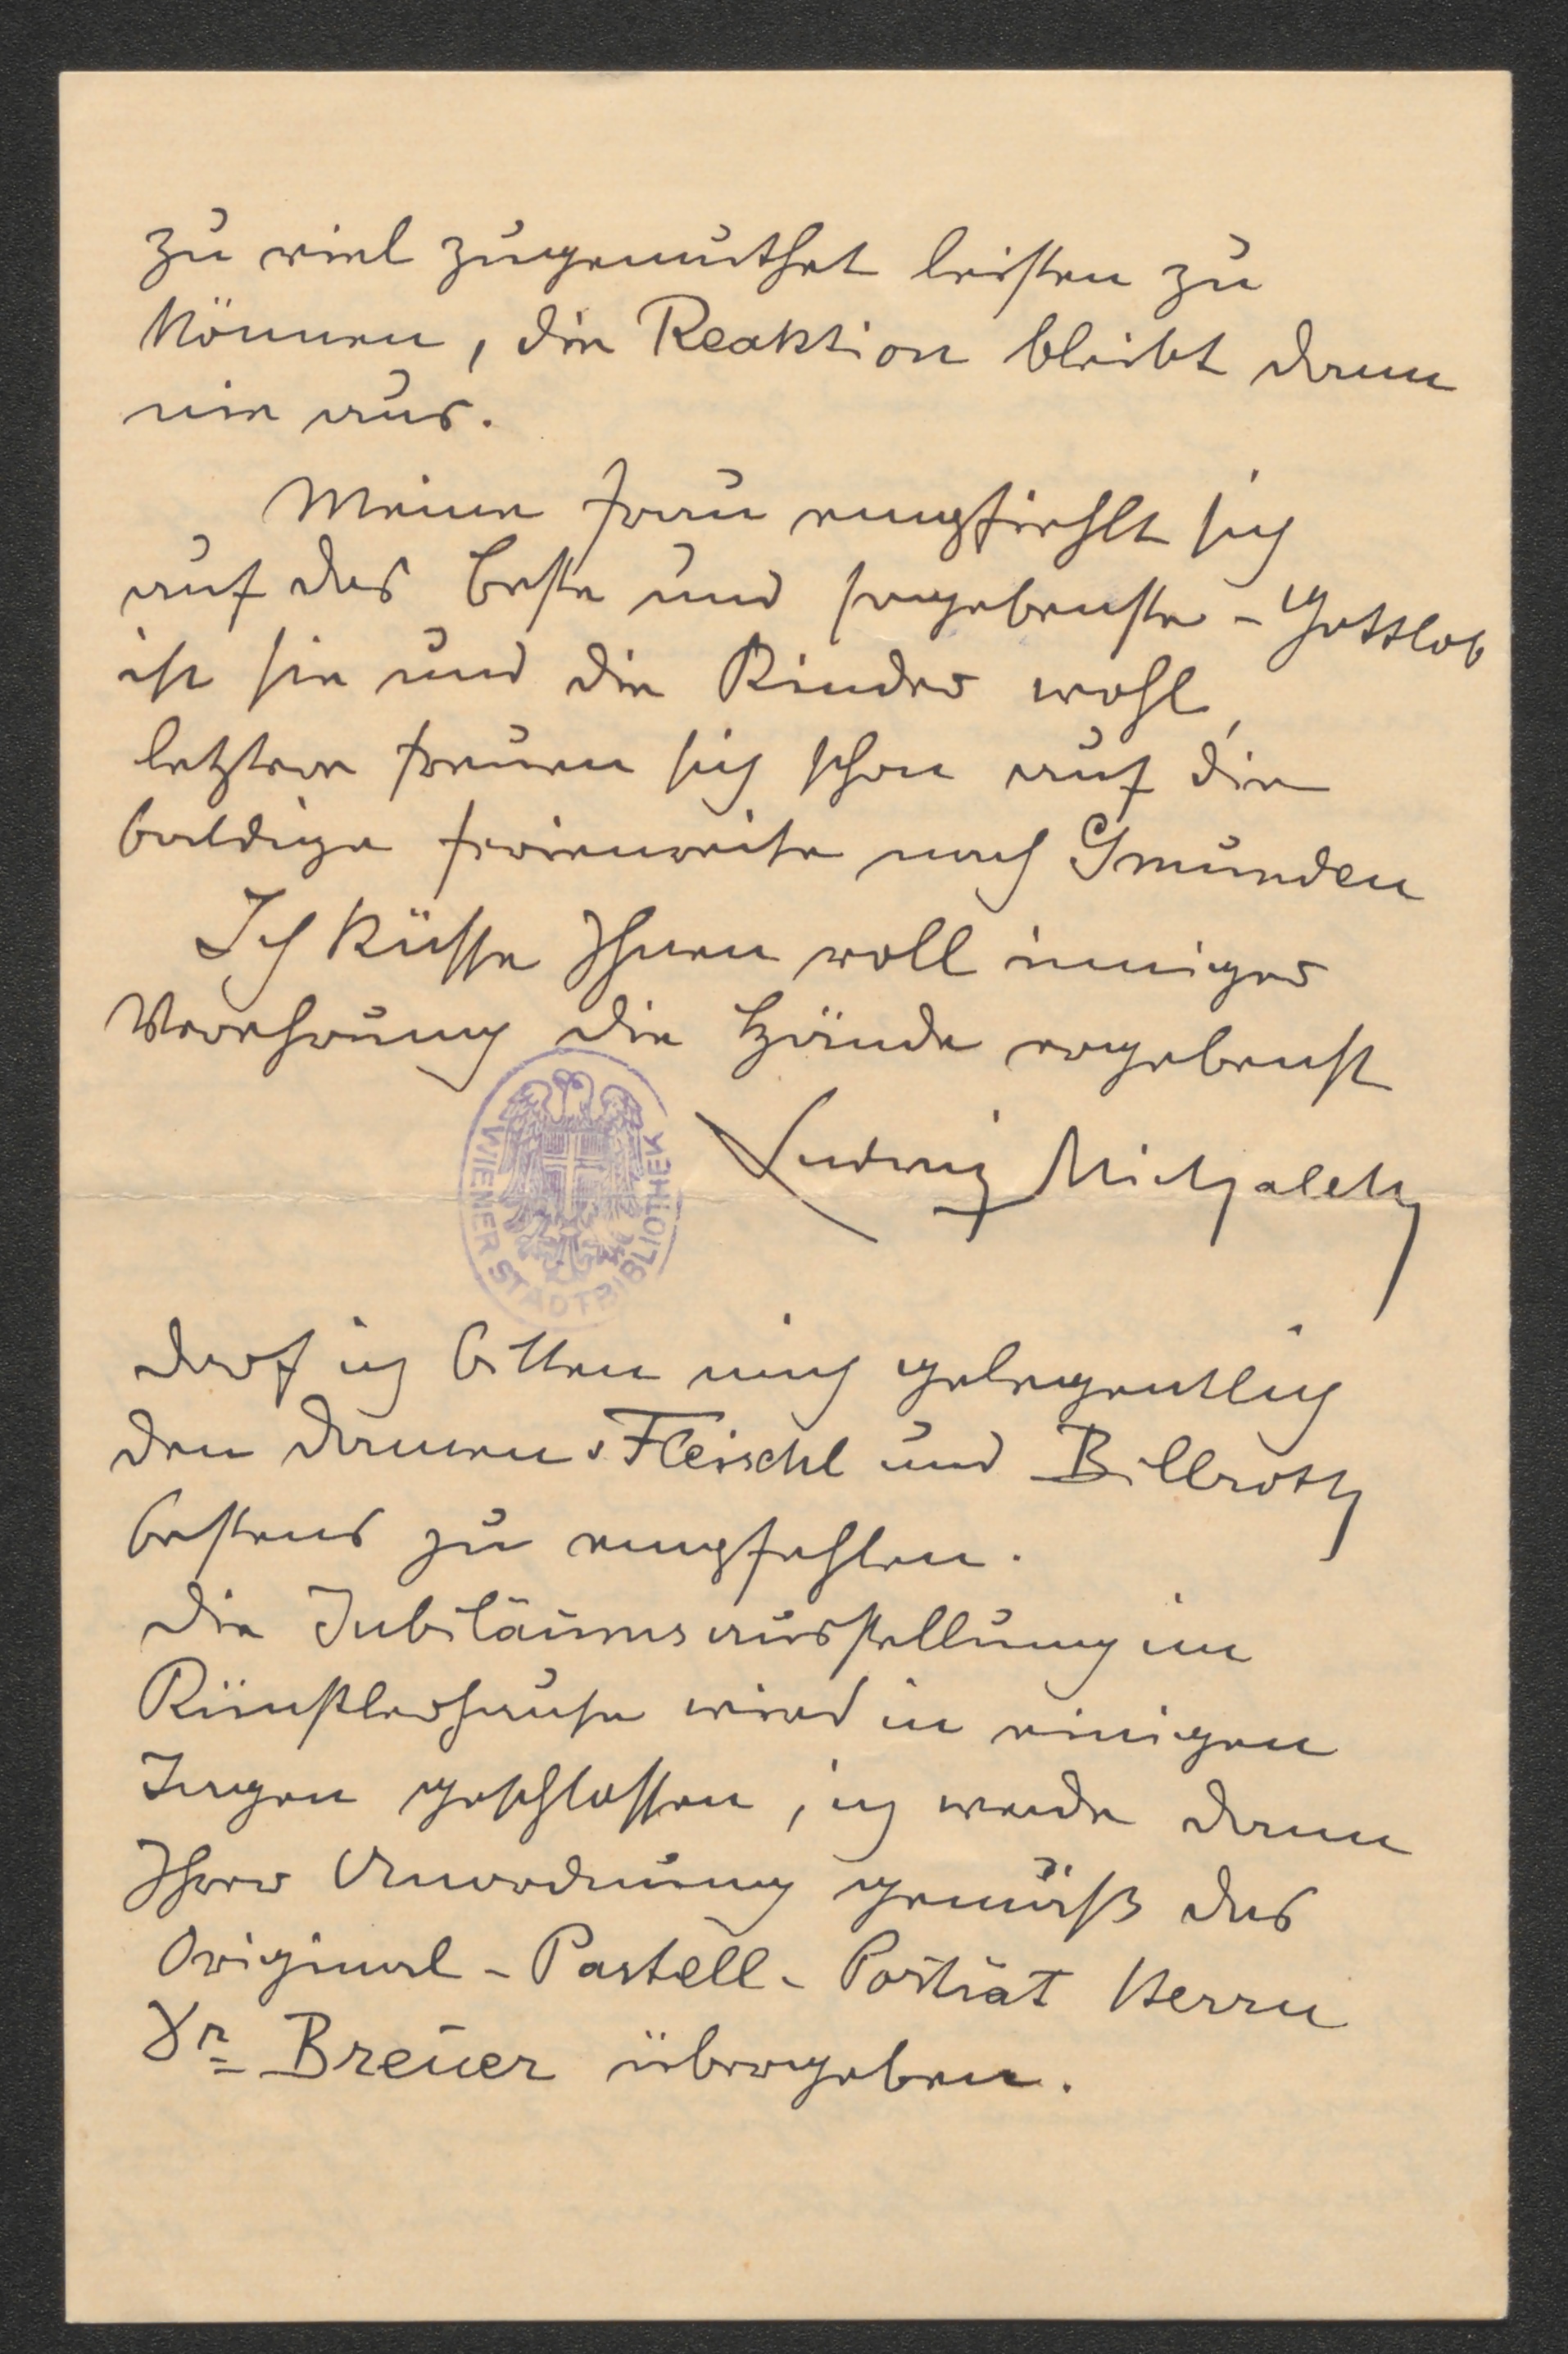 zu viel zugemuthet leisten zu
können, die Reaktion bleibt dann
nie aus.
Meine Frau empfiehlt sich
auf das Beste und ergebenste - Gottlob
ist sie und die Kinder wohl,
letztere freuen sich schon auf die
baldige Ferienreise nach Gmunden
Ich küsse Ihnen voll inniger
Verehrung die Hände ergebenst
Ludwig Michalek
WIENER STADTBIBLIOTHEK
Darf ich bitten mich gelegentlich
den Damen v Fleischl und Billroth
bestens zu empfehlen.
Die Jubiläumsausstellung im
Künstlerhause wird in einigen
Tagen geschlossen, ich werde dann
Ihrer Anordnung gemäß das
Original-Pastell-Porträt Herrn
Dr Breuer übergeben.